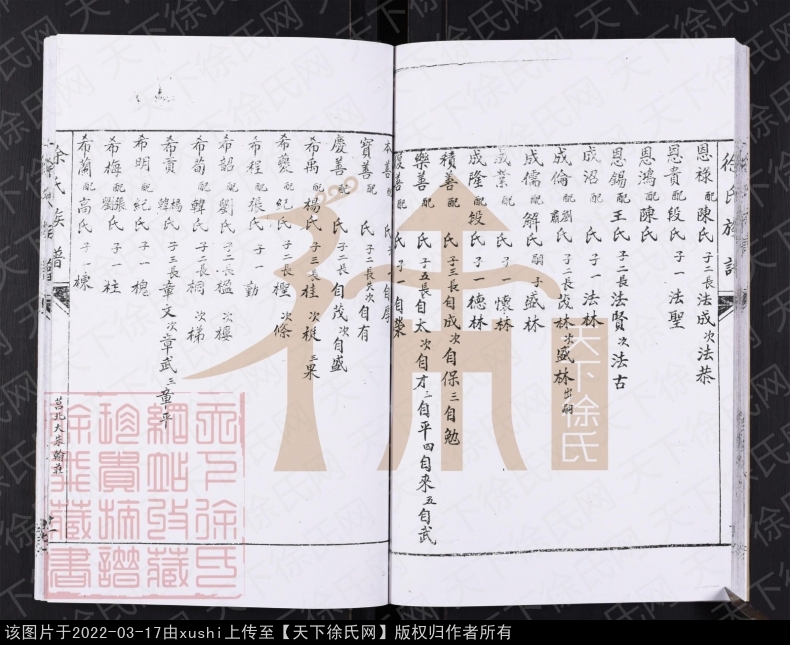 徐氏族譜
恩祿 配 陳氏 子二長 法成 次 法恭
恩貴 配 段氏 子一 法聖
恩鴻 配 陳氏
恩錫 配 王氏 子二長 法賢 次 法古
成沼 配 氏 子一 法林
成倫 配 劉 氏 子二長 茂林 次 盛林 出嗣
成儒 配 解氏 嗣子 盛林
成業 配 氏 子一 懷林
成隆 配 段氏 子一 德林
積善 配 氏 子三長 自成 次 自保 三 自勉
樂善 配 氏 子五長 自太 次 自才 三 自平 四 自來 五 自武
善 配 氏 子一 自榮
本善 配 氏 子一 自
寶善 配 氏 子二長 次 自有
慶善 配 氏 子二長 自茂 次 自盛
希禹 配 楊氏 子三長 桂 次 梃 三 果
希夔 配 紀氏 子二長 檉 次 條
希程 配 張氏 子一 勤
希韶 配 劉氏 子二長 楹 次 樓
希荀 配 韓氏 子二長 桐 次 梯
希貢 配 楊 韓 氏 子三長 章文 次 章武 三 章平
希明 配 紀氏 子一 槐
希梅 配 張 劉 氏 子一 柱
希蘭 配 高氏 子一 棟
徐氏族譜
莒北大朱翰莊
天下徐氏
天下徐氏網站收藏珍貴捕譜徐兆藏書
该图片于2022-03-17由xushi上传至【天下徐氏网】版权归作者所有